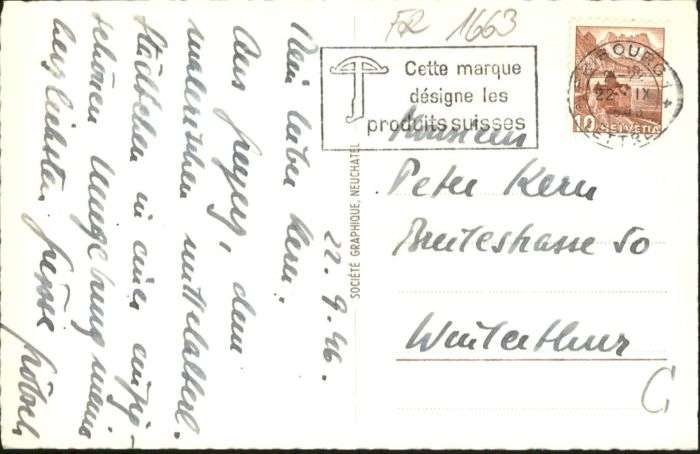 FR 1663
Cette marque
désigne les
produits suisses
FRIBOURG 1
22. IX
LETTRES
10 HELVETIA
22. 9. 46.
Mein lieber Kern.
Aus greyerz, dem
malerischen mittelalterl.
Städtchen in einer einzig-
schönen Umgebung meine
herzlichsten grüsse
SOCIÉTÉ GRAPHIQUE, NEUCHATEL
Monsieur
Peter Kern
Breitestrasse 50
Winterthur
C